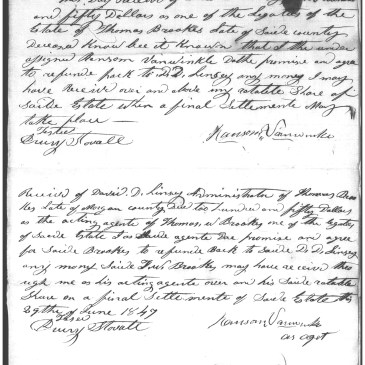 and fifty Dollars as one of the Legatees of the
Estate of Thomas Brookes Late of Saide county
Deceased Know bee it Known that I the under
assigned Ransom Vanwinkle Dothe promise and agree
to refunde back to D. D. Linsey any money I may
have Receivr over an above my ratable Share of
Saide Estate when a final Settlemente May
take place —
Teste
Drury Stovall
Ransom Vanwinke
Receivr of David D. Linsey Administrater of Thomas Broo
kes Late of Morgan county Dec too hundred and fifty Dollars
as the acting agente of Thomas W Brookes one of the Legatees
of Saide Estate I as Saide agente Due promise and agree
for Saide Brookes to refunde Back to Saide D. D. Linsey
any money Saide Brookes may have receive thro
ugh me as his acting agente over an his Saide ratable
Share on a final Settlemente of Saide Estate this
29th of June 1847
Teste
Drury Stovall
Ransom Vanwinke
as aget